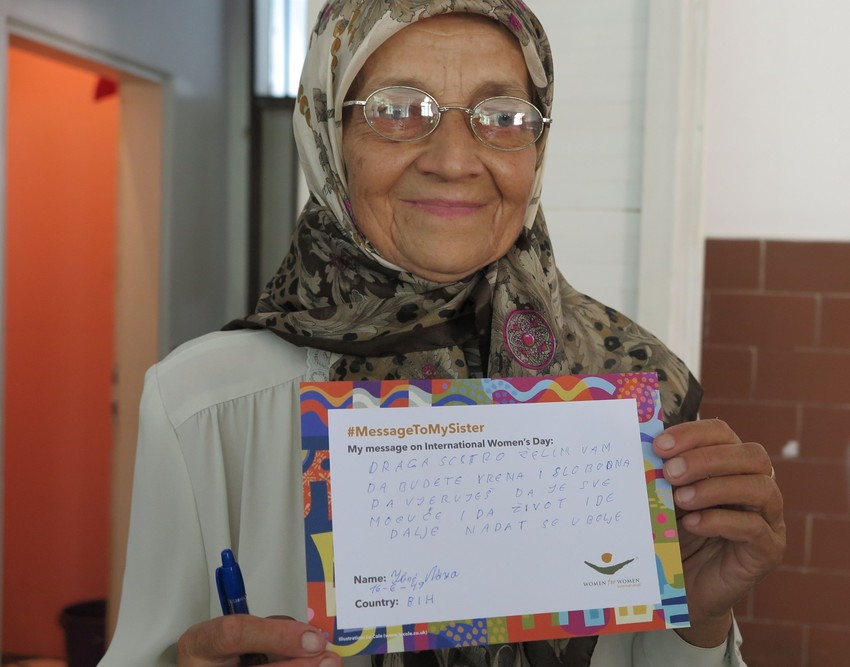 #MessageToMySister
My message on International Women's Day:
DRAGA SESTRO ŽELIM VAM
DA BUDETE VREDNA I SLOBODNA
DA VJERUJEŠ DA JE SVE
MOGUČE I DA ŽIVOT IDE
DALJE NADAT SE UBOLJE
Name:
16-6-47
Country: BIH
WOMEN for WOMEN